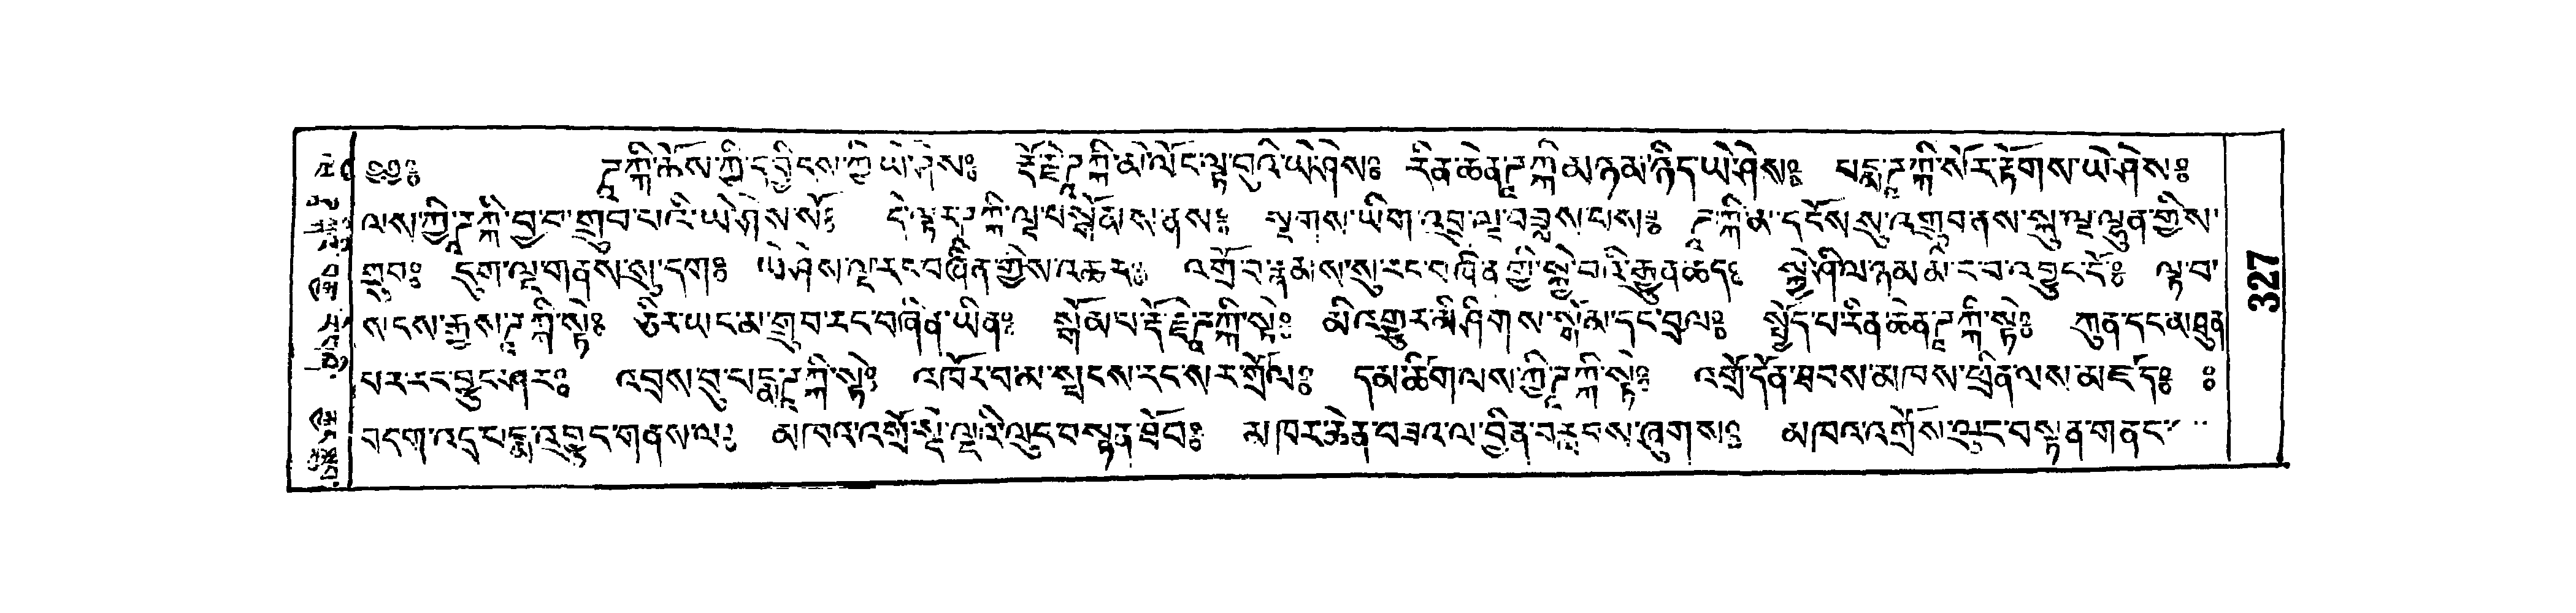 ༄༅༔ ཌཱཀྐི་ཆོས་ཀྱི་དབྱིངས་ཀྱི་ཡེ་ཤེས༔ རྡོ་རྗེ་ཌཱཀྐི་མེ་ལོང་ལྟ་བུའི་ཡེ་ཤེས༔ རིན་ཆེན་ཌཱཀྐི་མ་ཉམ་ཉིད་ཡེ་ཤེས༔ པདྨ་ཌཱཀྐི་སོར་རྟོགས་ཡེ་ཤེས༔
ལས་ཀྱི་ཌཱཀྐི་བྱ་བ་གྲུབ་པའི་ཡེ་ཤེས་སོ༔ དེ་ལྟར་ཌཱཀྐི་ལྔ་པ་སྒོམས་ནས༔ སྔགས་ཡིག་འབྲུ་ལྔ་བཟླས་པས༔ ཌཱཀྐི་མ་དངོས་སུ་འགྲུབ་ནས་སྐུ་ལྔ་ལྷུན་གྱིས་
གྲུབ༔ དུག་ལྔ་གནས་སུ་དག༔ ཡེ་ཤེས་ལྔ་རང་བཞིན་གྱིས་འཆར༔ འགྲོ་བ་རྣམས་སུ་རང་བཞིན་གྱི་སྐྱེ་བའི་རྒྱུན་ཆད༔ སྐྱེ་ཤི་ལ་ཉམ་མི་ང་བ་འབྱུང་ངོ༔ ལྟ་བ་
སངས་རྒྱས་ཌཱཀྐི་སྟེ༔ ཅིར་ཡང་མ་གྲུབ་རང་བཞིན་ཡིན༔ སྒོམ་པ་རྡོ་རྗེ་ཌཱཀྐི་སྟེ༔ མི་འགྱུར་མི་ཤིགས་སྒོམ་དང་བྲལ༔ སྤྱོད་པ་རིན་ཆེན་ཌཱཀྐི་སྟེ༔ ཀུན་དང་མཐུན
པར་རང་བྱུང་ཤར༔ འབྲས་བུ་པདྨ་ཌཱཀྐི་སྟེ༔ འཁོར་བ་མ་སྤངས་རང་སར་གྲོལ༔ དམ་ཚིག་ལས་ཀྱི་ཌཱཀྐི་སྟེ༔ འགྲོ་དོན་ཐབས་མཁས་ཕྲིན་ལས་མཛོད༔ ༔
བདག་འདྲ་པདྨ་འབྱུང་གནས་ལ༔ མཁའ་འགྲོ་སྡེ་ལྔའི་ལུང་བསྟན་ཐོབ༔ མཁར་ཆེན་བཟའ་ལ་བྱིན་བརླབས་ཞུགས༔ མཁའ་འགྲོས་ལུང་བསྟན་གནང་
723